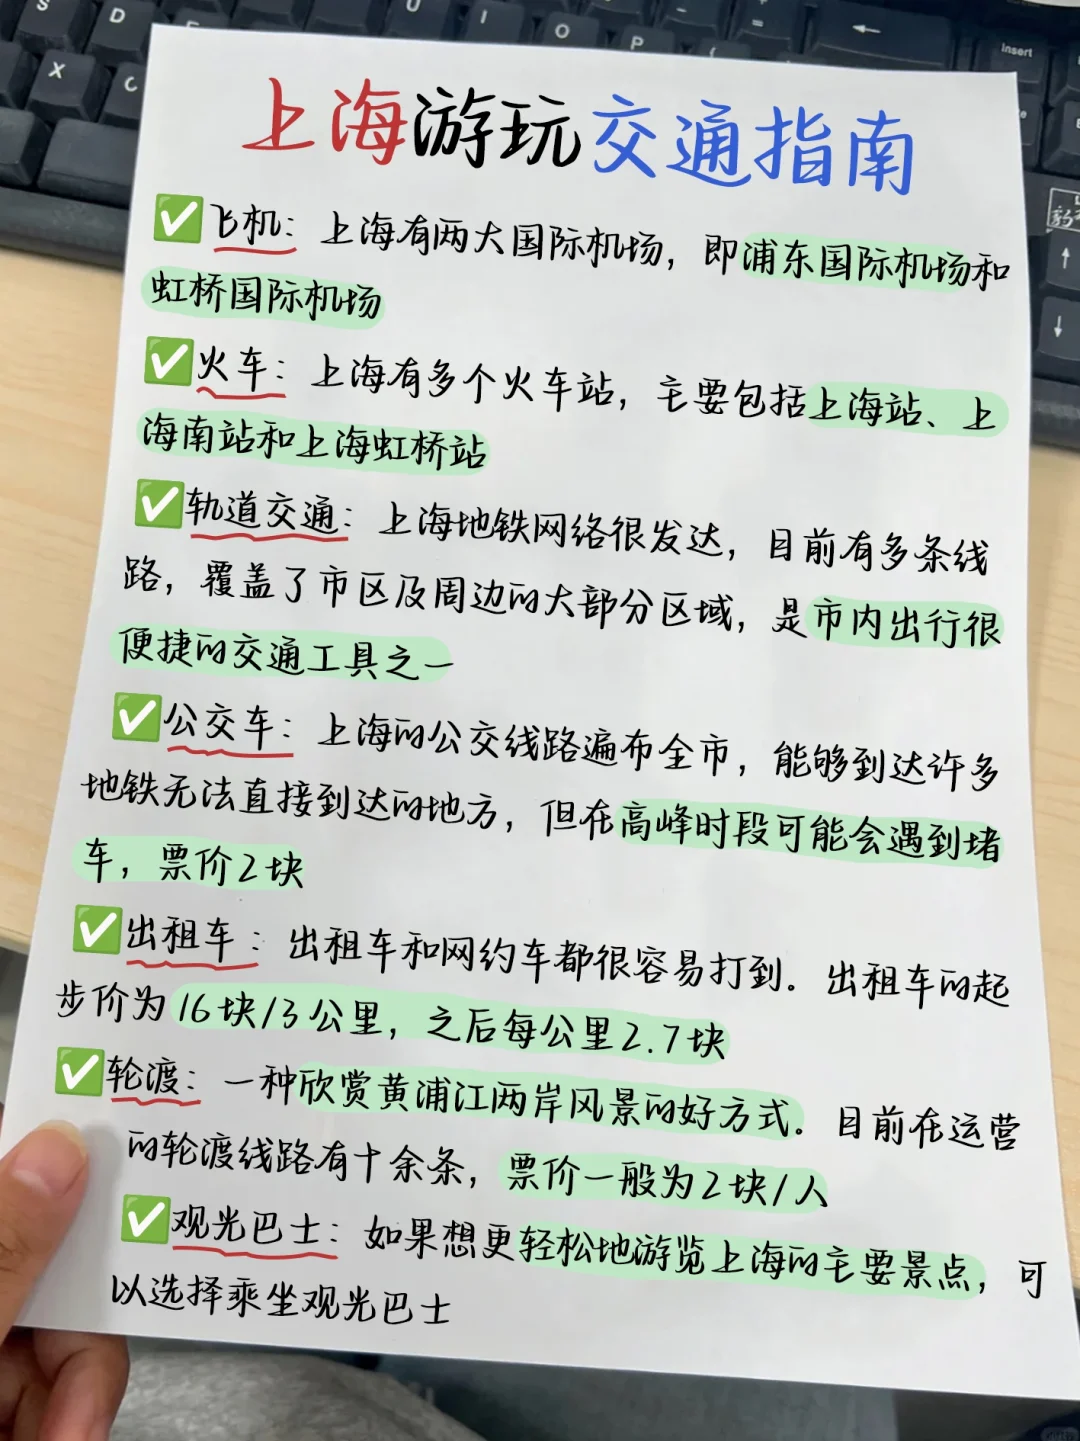 S D U I O P Insert
X C
上海游玩交通指南
✅飞机：上海有两大国际机场，即浦东国际机场和
虹桥国际机场
✅火车：上海有多个火车站，主要包括上海站、上
海南站和上海虹桥站
✅轨道交通：上海地铁网络很发达，目前有多条线
路，覆盖了市区及周边的大部分区域，是市内出行很
便捷的交通工具之一
✅公交车：上海的公交线路遍布全市，能够到达许多
地铁无法直接到达的地方，但在高峰时段可能会遇到堵
车，票价2块
✅出租车：出租车和网约车都很容易打到。出租车的起
步价为16块/3公里，之后每公里2.7块
✅轮渡：一种欣赏黄浦江两岸风景的好方式。目前在运营
的轮渡线路有十余条，票价一般为2块/人
✅观光巴士：如果想更轻松地游览上海的主要景点，可
以选择乘坐观光巴士